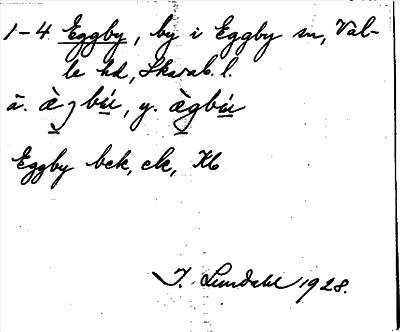 1-4 Eggby, by i Eggby sn, Val-
le hd, Skarab. l.
ä. , y.
Eggby bck, ek, Kb
I. Lundahl 1928.